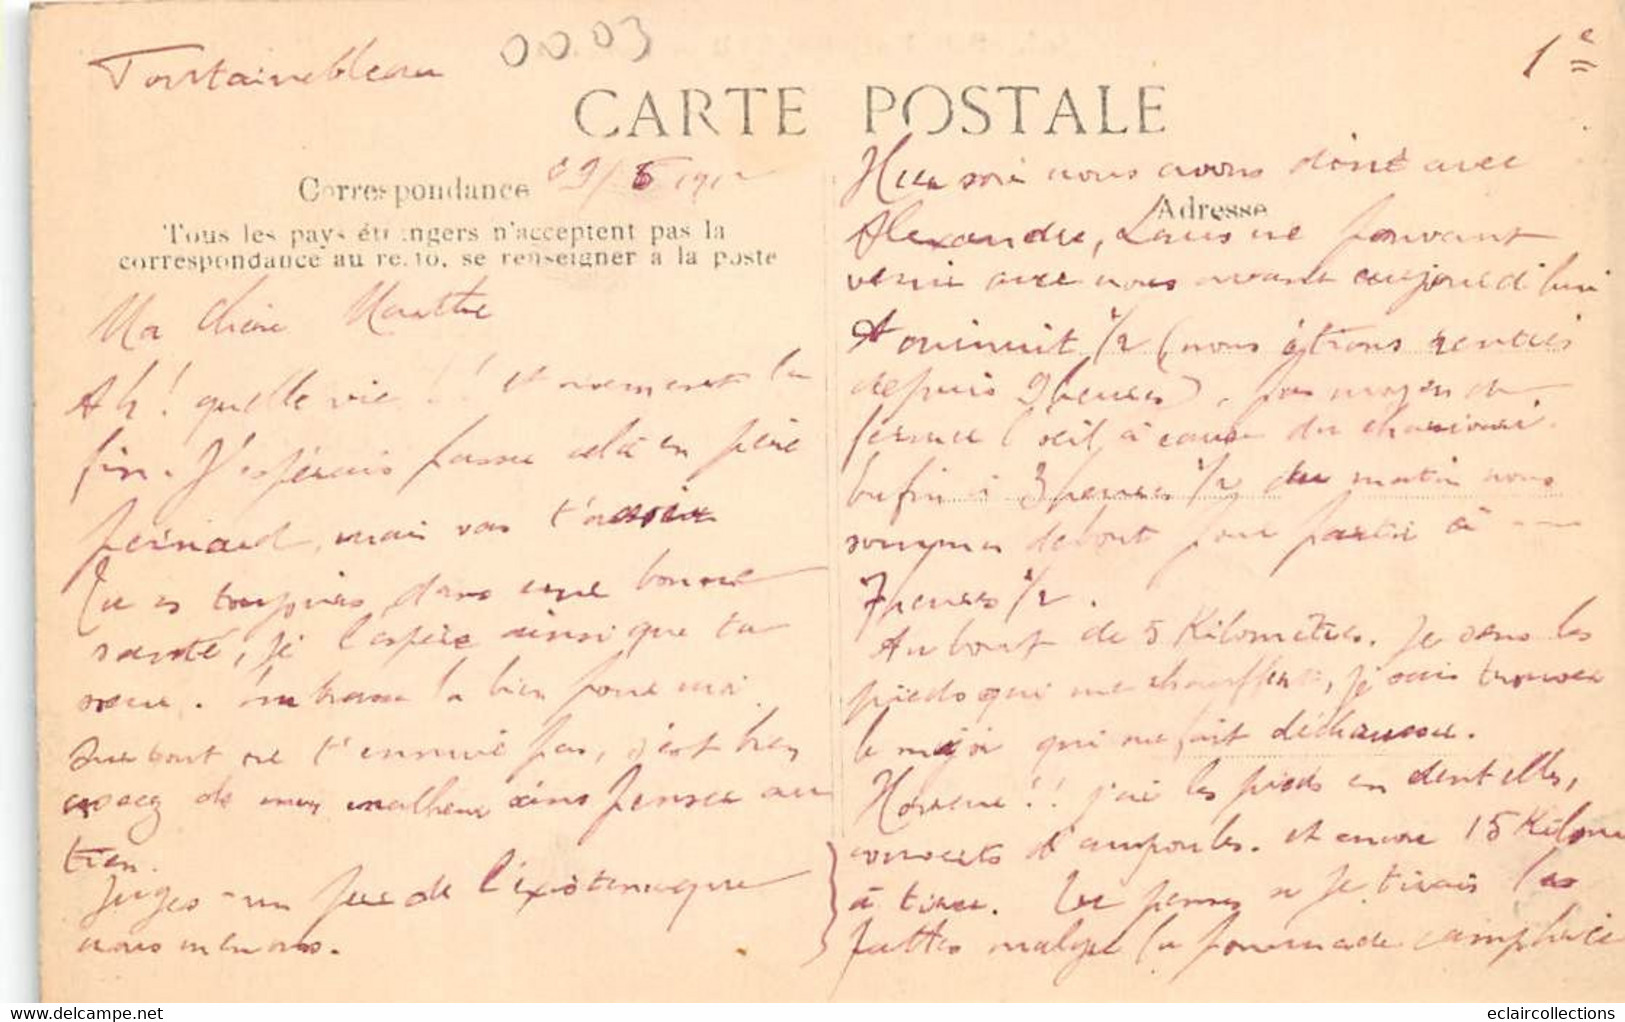 Fontainebleau
00.03
1e
CARTE POSTALE
Correspondance
29/5 1912
Tous les pays étrangers n'acceptent pas la
correspondance au recto, se renseigner à la poste
Adresse
Ma chère Marthe
Ah! quelle vie!! et vivement la
fin. J'espérais passer cela en père
peinard, mais vas t'asseoir
Tu es toujours dans une bonne
santé, je l'espère ainsi que ta
sœur. Embrasse la bien pour moi
Surtout ne t'ennuie pas, c'est bien
assez de mon malheur sans penser au
tien.
Juges-un peu de l'existence que
nous menons.
Hier soir nous avons dîné avec
Alexandre, Louis ne pouvant
venir avec nous avant aujourd'hui
A minuit 1/2 (nous étions rentrés
depuis 9 heures), pas moyen de
fermer l'œil à cause du charivari.
Enfin à 3 heures 1/2 du matin nous
sommes debout pour partir à
7 heures 1/2.
Au bout de 5 Kilomètres. Je sens les
pieds qui me chauffent, je vais trouver
le major qui me fait déchausser.
Horreur!! j'ai les pieds en dentelles,
couverts d'ampoules. et encore 15 Kilom
à tirer. Tu penses si je tirais les
pattes malgré la pommade camphrée
eclaircollections